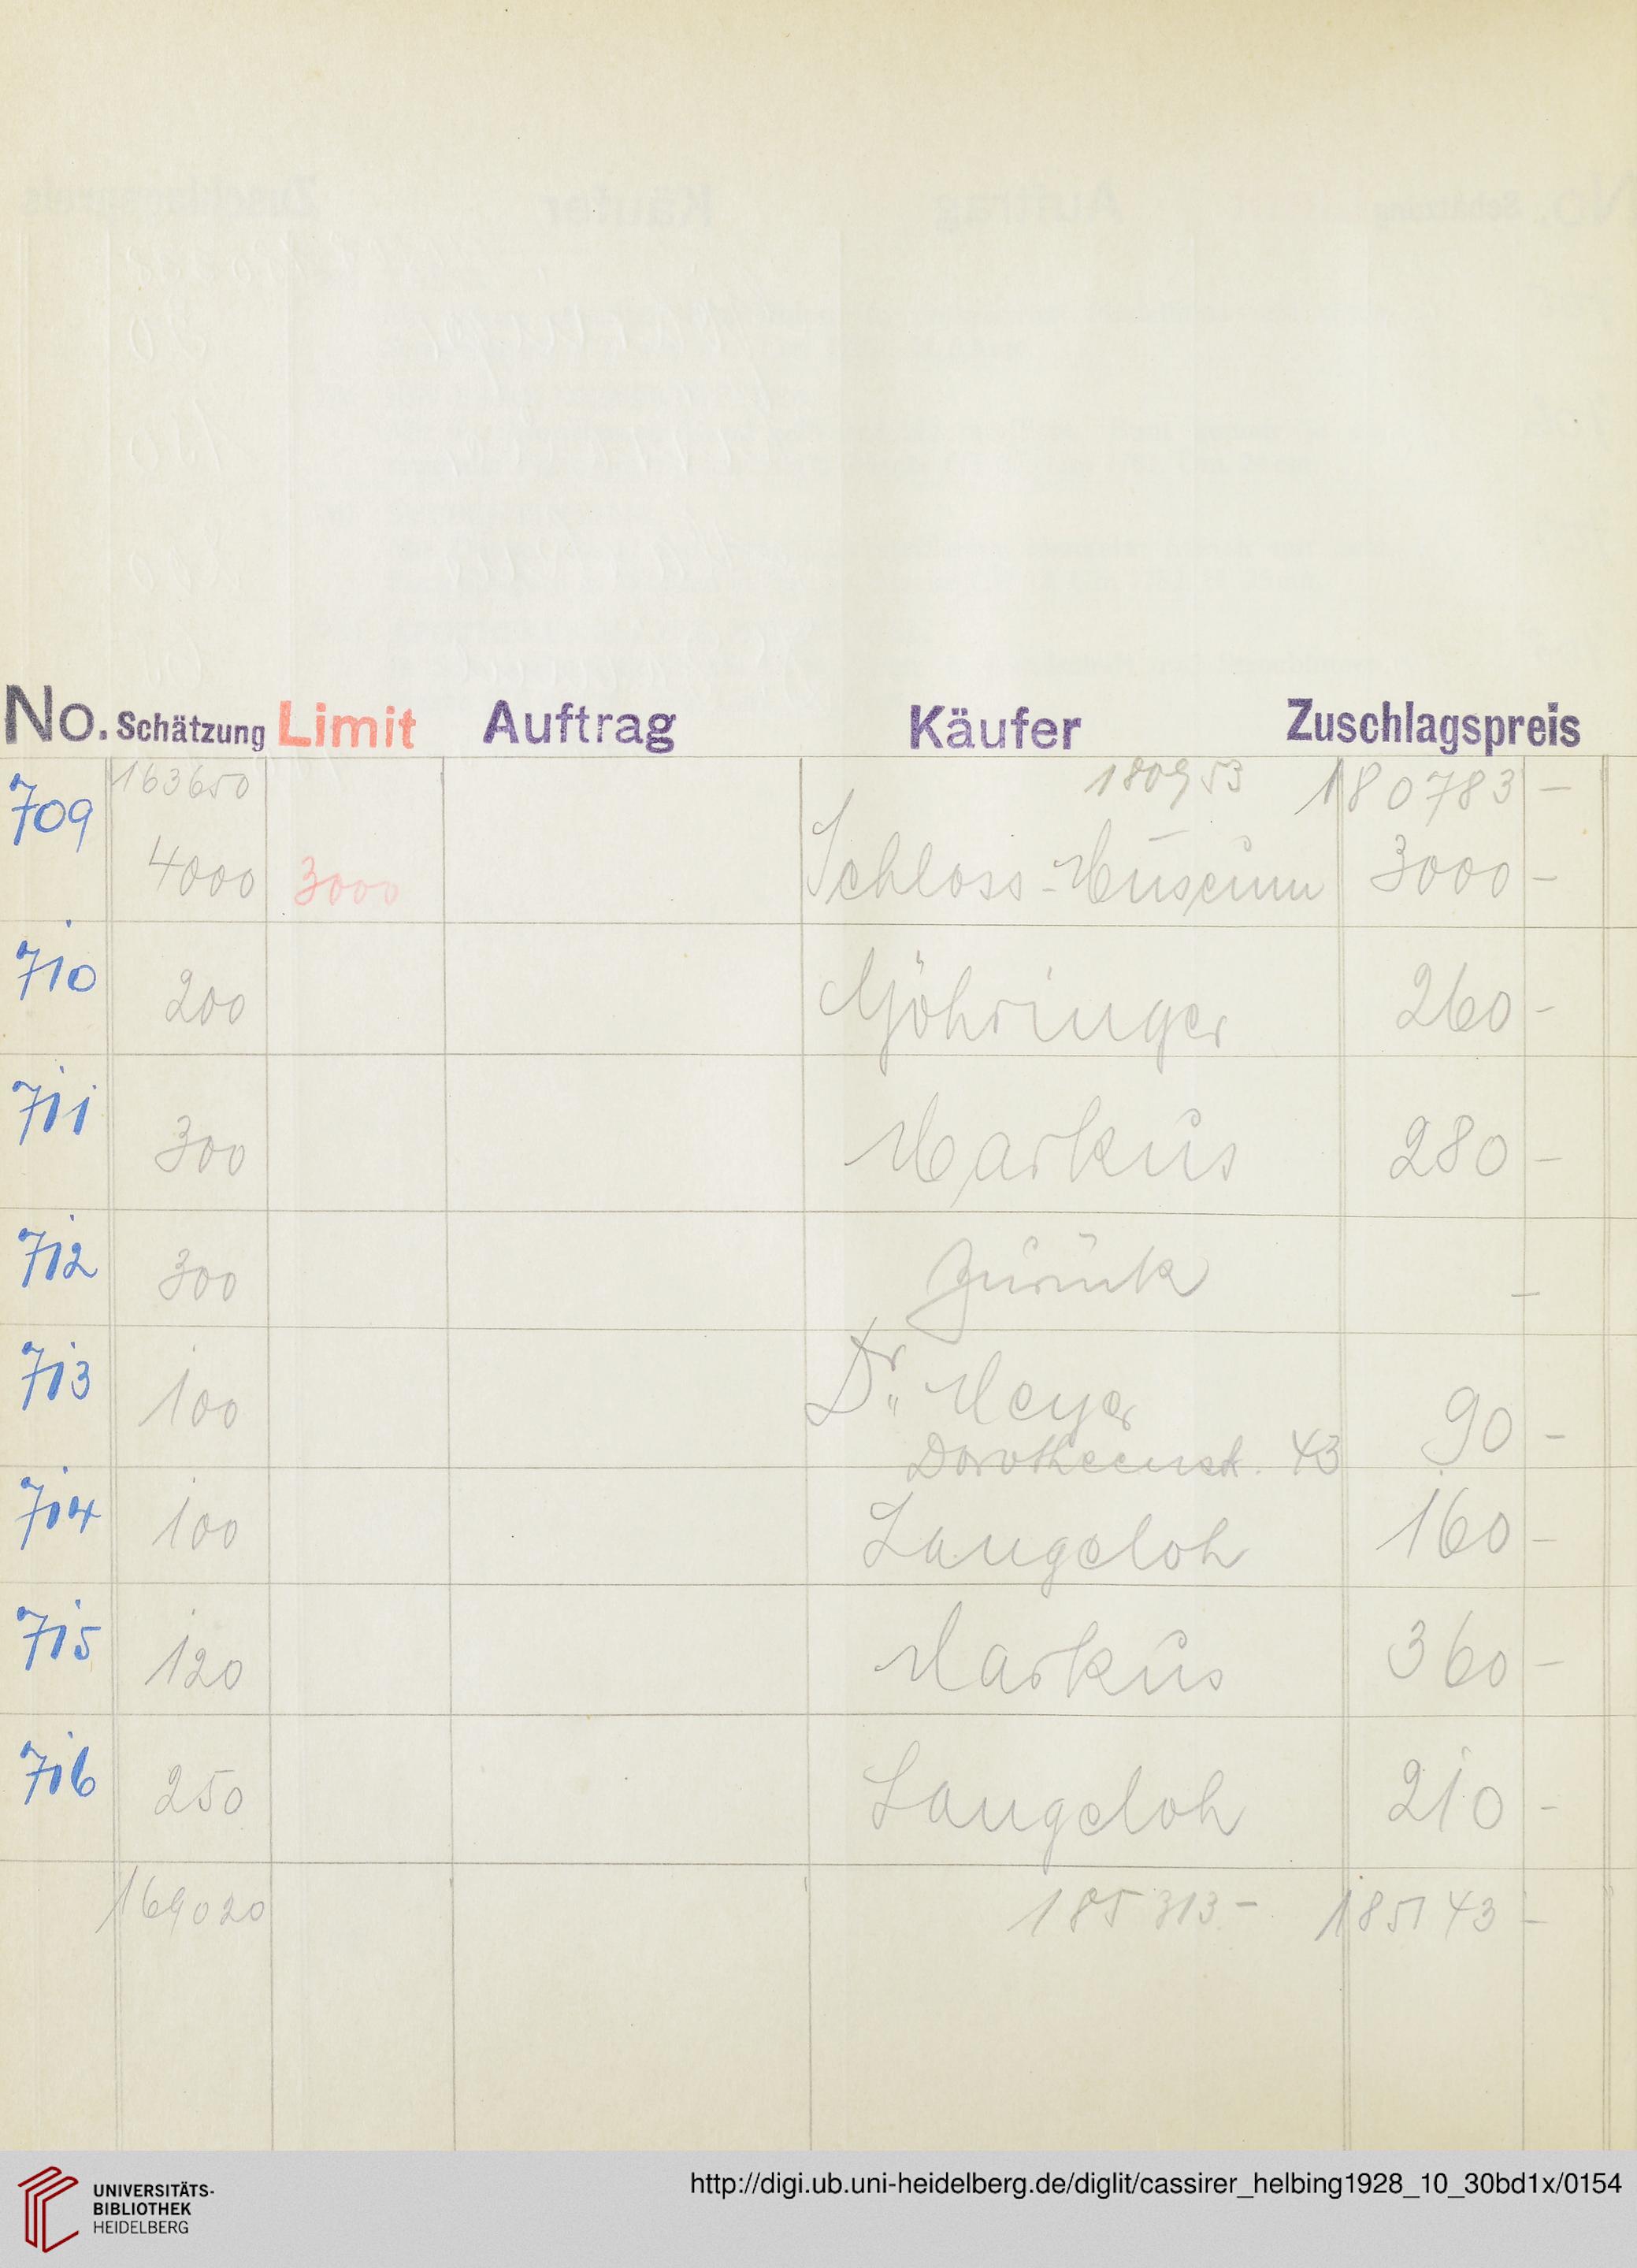 No. Schätzung Limit Auftrag Käufer Zuschlagspreis
163650 180953 180783 –
709 4000 3000 Schloss-Museum 3000 –
710 200 Möhringer 260 –
711 300 Markus 280 –
712 300 Zurück –
713 100 Dr. Meyer 90 –
Dorotheenst. 43
714 100 Langeloh 160 –
715 120 Markus 360 –
716 250 Langeloh 210 –
169020 185313 – 185143 –
UNIVERSITÄTS-
BIBLIOTHEK
HEIDELBERG
http://digi.ub.uni-heidelberg.de/diglit/cassirer_helbing1928_10_30bd1x/0154